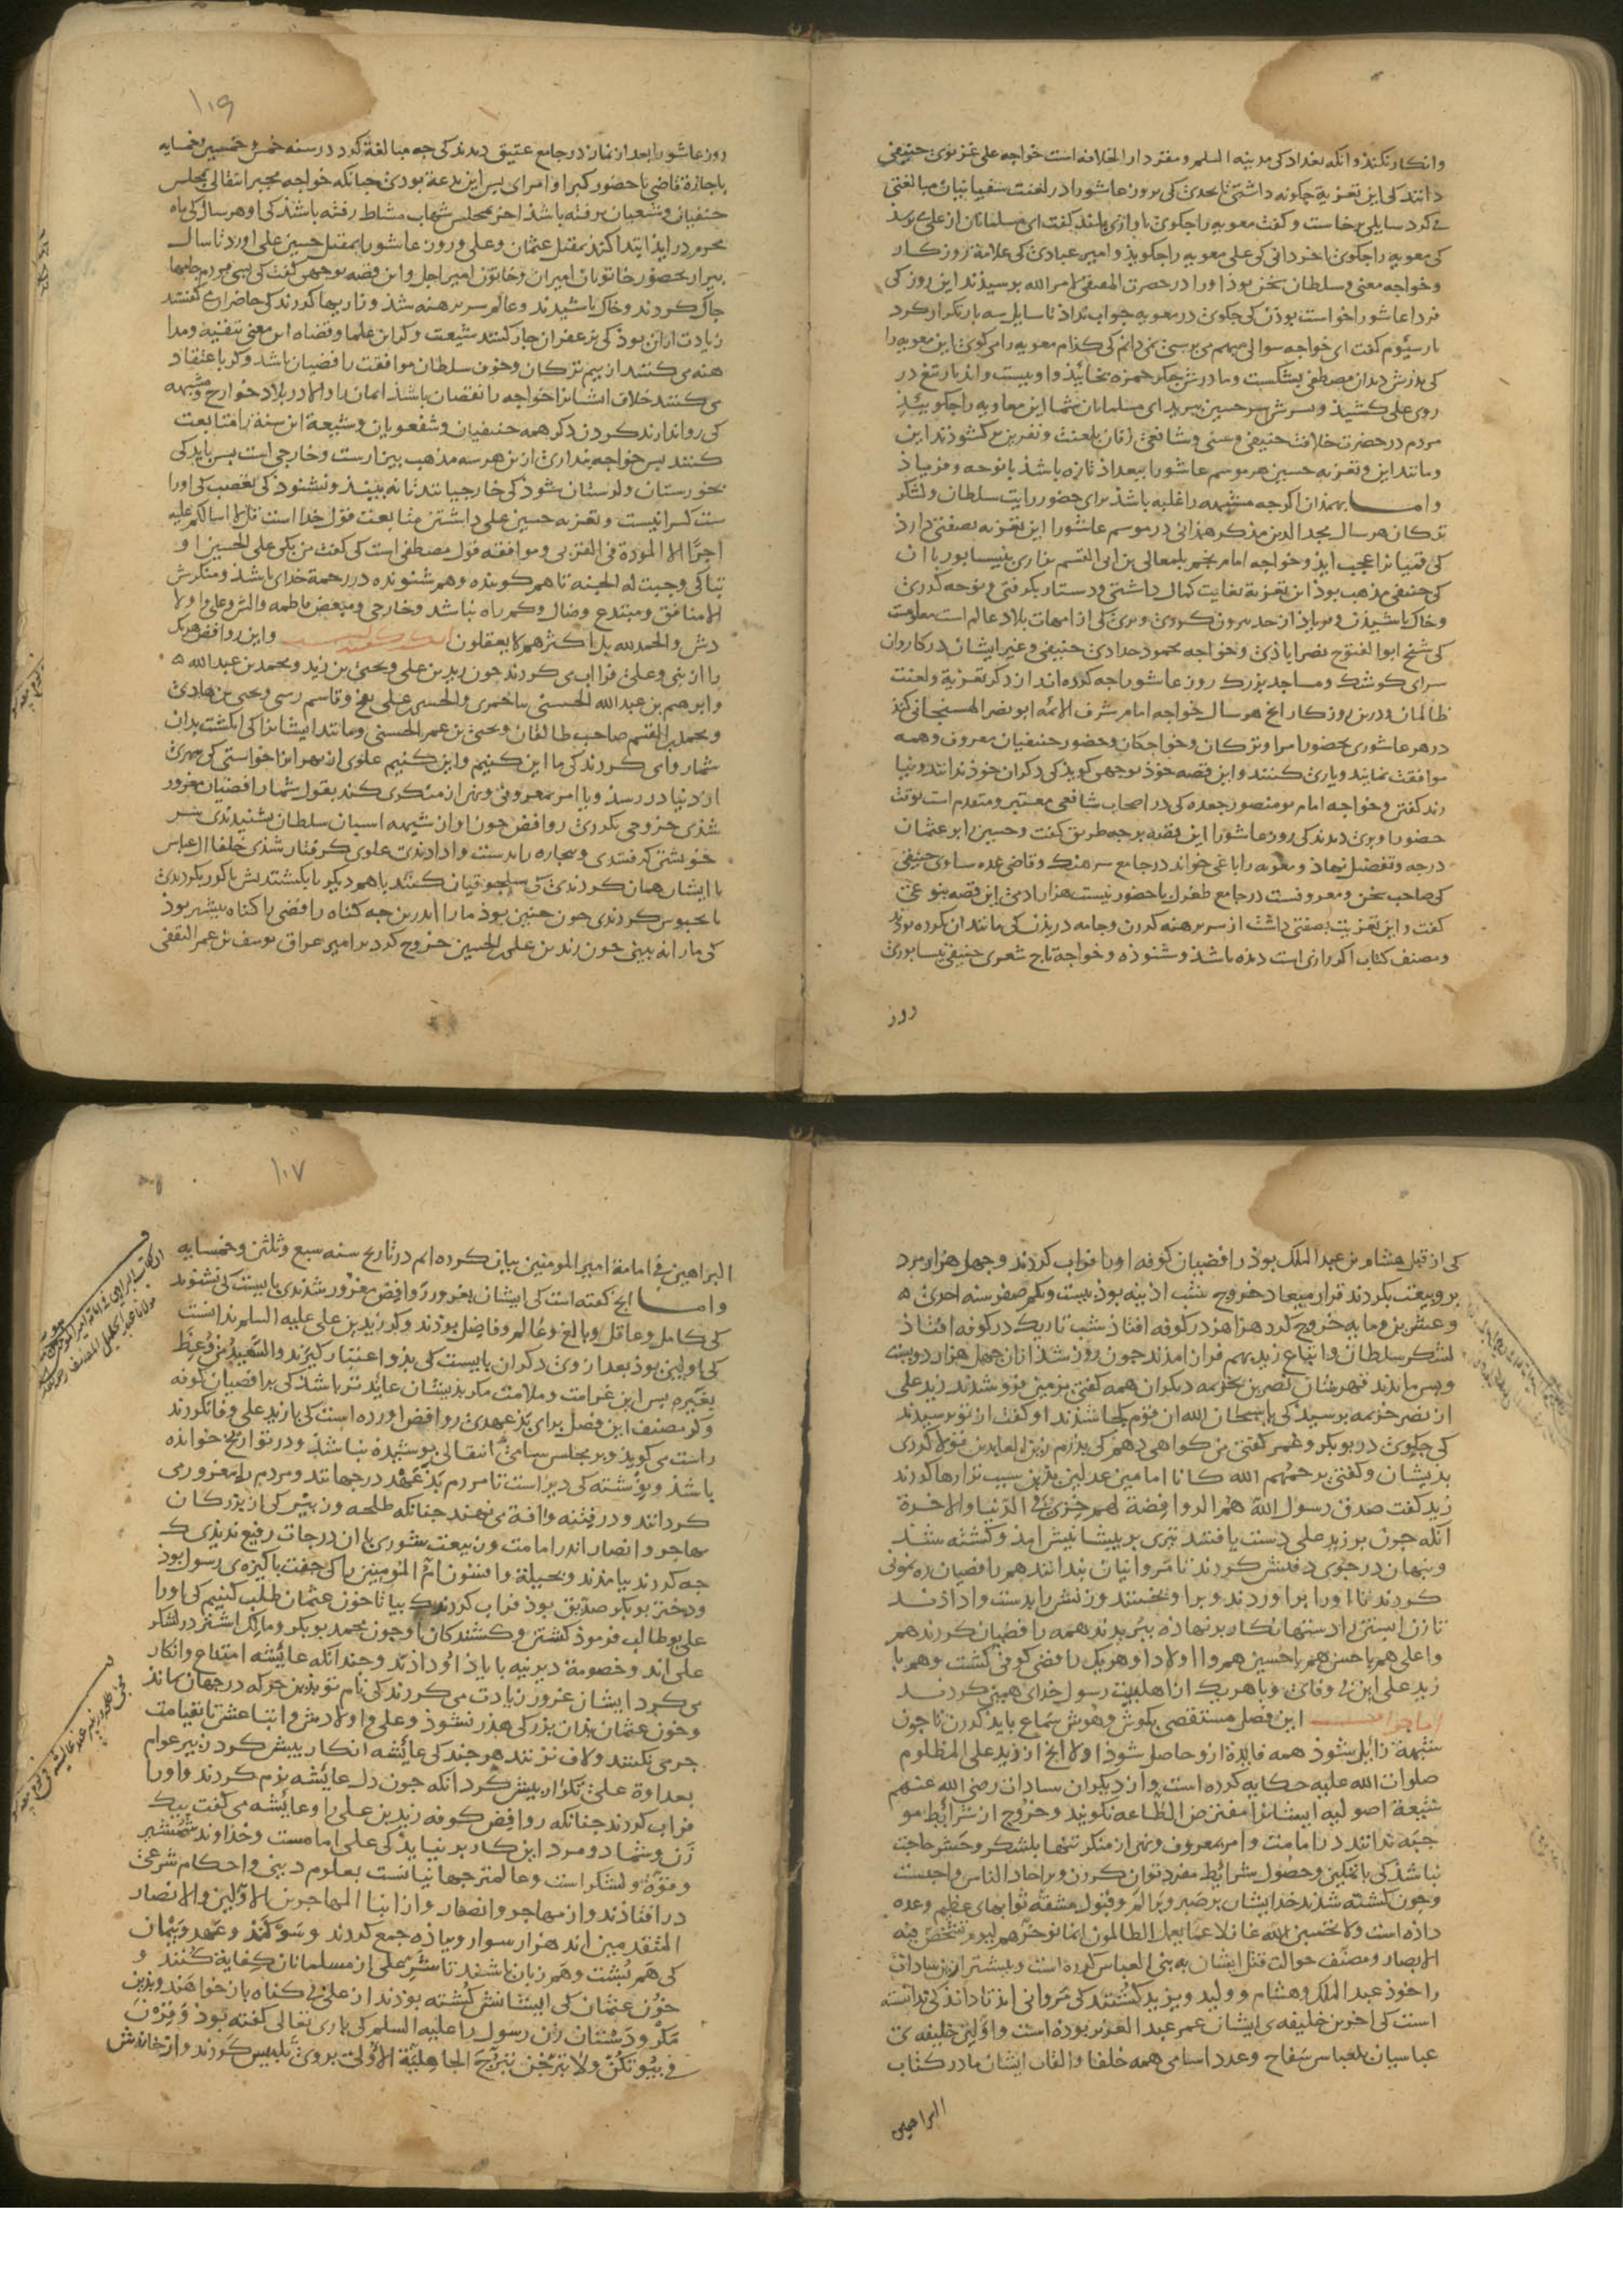 وانکار نکنند وانکه بغداد کی مدینه السلم ومقر دار الخلافه است خواجه علی غزنوی حنیفی
دانند کی این تعزیة چگونه داشتی تا بحدی کی بروز عاشورا در لعنت سفیانیان مبالغتی
می کرد سایلی برخاست و گفت معویه را چگوی باوازی بلند گفت ای مسلمانان از علی می پرسد
کی معویه را چگوی اخر دانی کی علی معویه را چگوید و امیر عبادی کی علامة روزگار
وخواجه معنی و سلطان سخن بوذ اورا در حضرت المقتفی لامر الله پرسیذند این روز کی
فردا عاشورا خواست بوذن کی چگوی در معویه جواب نداذ تا سایل سه بار تکرار کرد
بار سیوم گفت ای خواجه سوالی مبهم می پرسی نمی دانم کی کذام معویه را می گوی این معویه را
کی پذرش دندان مصطفی بشکست ومادرش جگر حمزه بخاییذ و او بیست واند بار تیغ در
روی علی کشیذ و پسرش سر حسین ببرید ای مسلمانان شما این معاویه را چگوییذ
مردم در حضرت خلافت حنیفی و سنی و شافعی زفان بلعنت و نفرین برگشوذند این
ومانند این و تعزیه حسین هر موسم عاشورا ببغداذ تازه باشذ با نوحه و فریاذ
واما بهمذان اگرچه مشبهه را غلبه باشذ برای حضور رایت سلطان و لشکر
ترکان هر سال مجد الدین مذکر همذانی در موسم عاشورا این تعزیه بصفتی دارذ
کی قمیانرا عجب ایذ وخواجه امام نجم بلمعالی بن ابی القسم بزاری بنیسابور با ان
کی حنیفی مذهب بوذ این تعزیة بغایت کمال داشتی ودستار بگرفتی و نوحه کردی
وخاک پاشیذی و فریاذ از حد بیرون کردی وبری کی از امهات بلاد عالم است معلومست
کی شیخ ابوالفتوح نصراباذی وخواجه محمود حدادی حنیفی وغیر ایشان در کاروان
سرای کوشک ومساجد بزرگ روز عاشورا چه کرده اند از ذکر تعزیة ولعنت
ظالمان ودرین روزگار انچ هر سال خواجه امام شرف الائمه ابو نصر الهسنجانی کند
در هر عاشوری بحضور امرا وترکان وخواجگان وحضور حنیفیان معروف وهمه
موافقت نمایند ویاری کنند واین قصه خوذ بوجهی گویذ کی دگران خوذ ندانند ونیا
رند گفتن وخواجه امام بومنصور حفده کی در اصحاب شافعی معتبر ومتقدم است بوقت
حضور او بری دیدند کی روز عاشورا این قصه بر چه طریق گفت وحسین را بر عثمان
درجه وتفضیل نهاذ ومعویه را باغی خواند در جامع سرهنگ وقاضی عمده ساوی حنیفی
کی صاحب سخن ومعروفست در جامع طغرل با حضور بیست هزار ادمی این قصه بنوعی
گفت واین تعزیت بصفتی داشت از سر برهنه کردن وجامه دریذن کی مانند ان نکرده بوذند
ومصنف کتاب اگر رازی است دیذه باشذ وشنوذه وخواجه تاج شعری حنیفی نیسابوری
روز
۱۰۶
روز عاشورا بعد از نماز در جامع عتیق دیدند کی چه مبالغة کرد در سنه خمس وخمسین وخمسایه
باجازة قاضی با حضور کبرا وامرا پس این بدعة بودی چنانکه خواجه مجبر انتقالی بمجلس
حنفیان وشفعیان نرفته باشذ اخر بمجلس شهاب مشاط رفته باشذ کی او هر سال کی ماه
محرم درایذ ابتدا کند بمقتل عثمان وعلی وروز عاشورا بمقتل حسین علی اورد تا سال
پیرار بحضور خاتونان امیران وخاتون امیر اجل واین قصه بوجهی گفت کی بسی مردم جامها
چاک کردند وخاک پاشیدند وعالم سر برهنه شد وزاریها کردند کی حاضران می گفتند
زیادت ازان بوذ کی بزعفران جار کنند شیعت وگر این علما وقضاه این معنی بتقیه ومدا
هنه می کنند از بیم ترکان وخوف سلطان موافقت رافضیان باشد وگر باعتقاد
می کنند خلاف ایشانرا خواجه را نقصان باشذ ایمان را والا در بلاد خوارج ومشبهه
کی روا ندارند کردن دگر همه حنیفیان وشفعویان وشیعة این سنة را متابعت
کنند پس خواجه پنداری ازین هر سه مذهب بیزارست وخارجی است پس باید کی
بخوزستان ولرستان شود کی خارجیانند تا نه بینذ ونشنود کی تعصب کی اورا
ست کس را نیست وتعزیه حسین علی داشتن متابعت قول خدا است قل لا اسالکم علیه
اجرا الا المودة فی القربی وموافقه قول مصطفی است کی گفت من بکی علی الحسین او
تباکی وجبت له الجنة تا هم گوینده وهم شنونده در رحمة خدای باشذ ومنکرش
الا منافق ومبتدع وضال وگمراه نباشد وخارجی ومبغض فاطمه والش وعلی واولا
دش والحمدلله بل اکثرهم لا یعقلون واین روافض هریک
را از بنی وعلی فراب می کردند چون زید بن علی ویحیی بن زید ومحمد بن عبدالله
وابرهیم بن عبدالله الحسنی بباخمری والحسین علی بفخ وقاسم رسی ویحیی بن هادی
ومحمد بن القسم صاحب طالقان ویحیی بن عمر الحسنی ومانند ایشانرا کی انگشت بدان
شمار وامی کردند کی ما این کنیم واین کنیم علوی از بهر انرا خواستی کی بهری
از دنیا در رسد ویا امر بمعروفی ونهی از منکری کند بقول شما رافضیان مغرور
شذی خروجی بکردی روافض چون اواز شیهه اسبان سلطان بشنیدندی سر
خویشتن گرفتندی وبیچاره را بدست وادادندی علوی گرفتار شذی خلفا ال عباس
با ایشان همان کردندی کی سلجوقیان کنند باهم دیگر یا بکشتندش یا کور بکردندی
یا محبوس کردندی چون چنین بوذ ما را اندرین چه گناه رافضی را گناه بیشتر بوذ
کی مارا نه بینی چون زید بن علی الحسین خروج کرد بر امیر عراق یوسف بن عمر الثقفی
کی از قبل هشام بن عبدالملک بوذ رافضیان کوفه اورا فراب کردند وچهل هزار مرد
برو بیعت بکردند قرار میعاد خروج شب اذینه بوذ بیست ویکم صفر سنه احدی
وعشرین ومایه خروج کرد هزاهز در کوفه افتاذ شب تاریک در کوفه افتاذ
لشکر سلطان واتباع زید بهم فراز امدند چون روز شد ازان چهل هزار دویست
وبیس ماندند قهرشان نصر بن خزیمه دیگران همه گفتی بزمین فرو شدند زید علی
از نصر خزیمه پرسید کی یا سبحان الله ان قوم کجا شدند او گفت از تو پرسیدند
کی چگوی در بوبکر وعمر گفتی من گواهی دهم کی پذرم زین العابدین تولا کردی
بدیشان وگفتی یرحمهم الله کانا امامین عدلین بذین سبب تبراها کردند
زید گفت صدق رسول الله هم الروافضة لهم خزی فی الدنیا والاخرة
انکه چون بر زید علی دست یافتند تیری بر پیشانیش امذ وکشته شد
وپنهان در جوی دفنش کردند تا مروانیان بندانند هم رافضیان ره نمونی
کردند تا اورا براوردند وبراویختند وزنش را بدست واداذند
تا زن ابستن را دستها بنگار بر نهاذه ببریدند همه رافضیان کردند هم
واعلی هم با حسن هم با حسین هم وا اولاد او هریک رافضی کوفی کشت وهم با
زید علی این بی وفای وبا هریک از اهلبیت رسول خدای همین کردند
اما جواب این فصل مستقصی بگوش وهوش سماع باید کردن تا چون
شبهة زایل شوذ همه فایدة ازو حاصل شوذ اولا انچ از زید علی المظلوم
صلوات الله علیه حکایه کرده است واز دیگران سادات رضی الله عنهم
شیعة اصولیه ایشانرا مفترض الطاعه نگویند وخروج از شرایط مو
جبه ندانند در امامت وامر بمعروف ونهی از منکر تنها بلشکر وحشر حاجت
نباشذ کی با تمکین وحصول شرایط مفرد توان کردن وبر احاد الناس واجبست
وچون کشته شدند خدا ایشان بر صبر وبر الم وقبول مشقة ثوابهای عظیم وعده
داذه است ولا تحسبن الله غافلا عما یعمل الظالمون انما یوخرهم لیوم تشخص فیه
الابصار ومصنف حوالت قتل ایشان به بنی العباس کرده است وبیشتر از سادات
را خوذ عبد الملک وهشام وولید ویزید کشتند کی مروانی اند تا داند کی ندانسته
است کی اخرین خلیفه ی ایشان عمر عبد العزیز بوده است واولین خلیفه ی
عباسیان بلعباس سفاح وعدد اسامی همه خلفا والقاب ایشان ما در کتاب
البراهین
۱۰۷
البراهین فی امامة امیر المومنین بیان کرده ایم در تاریخ سنه سبع وثلثین وخمسایه
واما انچ گفته است کی ایشان بغرور روافض مغرور شدندی بایست کی نشنوند
کی کامل وعاقل وبالغ وعالم وفاضل بوذند وگر زید بن علی علیه السلم ندانست
کی اولین بوذ بعد ازوی دگران بایست کی بذو اعتبار گیرند والسعید من وعظ
بغیره پس این غرامت وملامت مگر بذیشان عایدتر باشذ کی برافضیان کوفه
وگر مصنف این فصل برای بذعهدی روافض اورده است کی با زید علی وفا نکردند
راست می گوید وبر مجلس سامی انتقالی پوشیذه نباشذ ودر تواریخ خوانذه
باشذ ونوشته کی دیر است تا مردم بذ عهد در جهانند ومردم را مغرور می
گردانند ودر فتنه وافة می نهند چنانکه طلحه وزبیر کی از بزرگان
مهاجر وانصار اند از امامت وز بیعت شوری با ان درجات رفیع ندیذی کی
چه کردند بیامذند وبحیلة وافسون ام المومنین را کی جفت پاکیزه ی رسول بوذ
ودختر بوبکر صدیق بوذ فراب کردند کی بیا تا خون عثمان طلب کنیم کی اورا
علی بوطالب فرموذ کشتن وکشندگان او چون محمد بوبکر ومالک اشتر در لشکر
علی اند وخصومة دیرینه با یاذ او داذند وچندانکه عایشه امتناع وانکار
می کرد ایشان غرور زیادت می کردند کی نام تو بذین حرکه در جهان بماند
وخون عثمان بذان بزرگی هذر نشوذ وعلی واولادش واتباعش تا بقیامت
جرمی نکنند ولاف نزنند هر چند کی عایشه انکار بیش کرد زبیر عوام
بعداوة علی تکرار بیش کرد انکه چون دل عایشه نرم کردند واورا
فراب کردند چنانکه روافض کوفه زید بن علی را وعایشه می گفت بیک
زن وشما دو مرد این کار بر نیایذ کی علی امامست وخداوند شمشیر
وقوة ولشکر است وعالمتر جهانیانست بعلوم دینی واحکام شرعی
در افتاذند واز مهاجر وانصار واز ابنا المهاجرین الاولین والانصار
المتقدمین اند هزار سوار وپیاذه جمع کردند وسوگند وعهد وپیمان
کی هم پشت وهم زبان باشند تا شر علی از مسلمانان کفایه کنند و
خون عثمان کی ایشانش کشته بوذند از علی بی گناه باز خواهند وبذین
مکر ودستان زن رسول را علیه السلم کی باری تعالی گفته بوذ وقرن
فی بیوتکن ولا تبرجن تبرج الجاهلیة الاولی بروی تلبیس کردند واز خانه اش